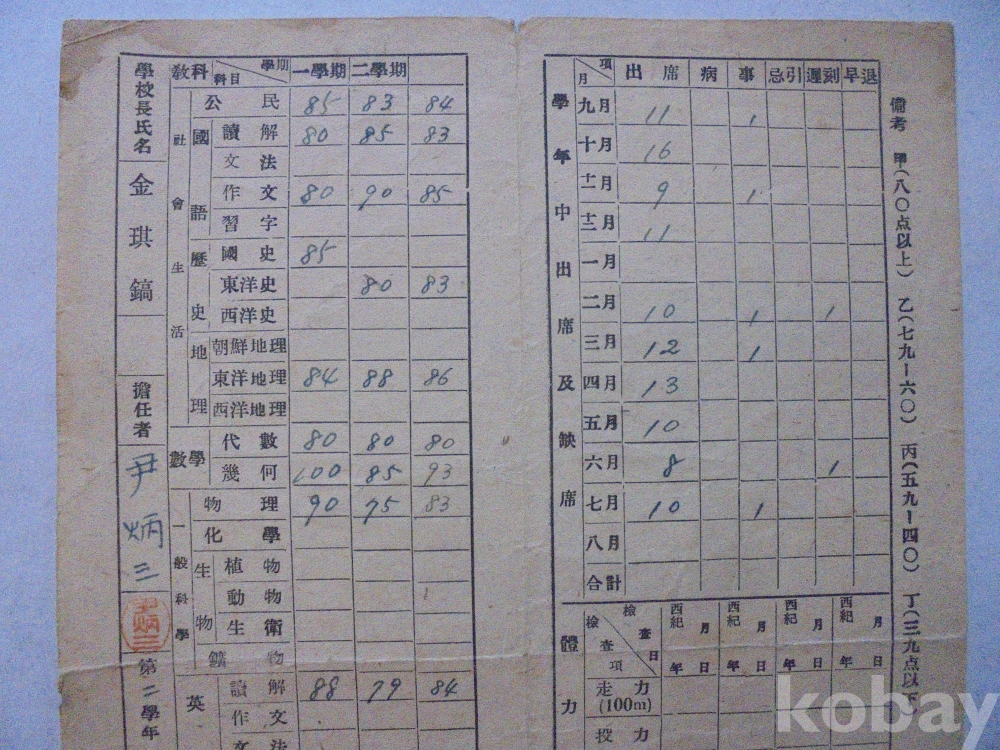 學校長氏名 金琪鎬
擔任者 尹炳三
第二學年
教科 科目 學期 一學期 二學期
社會生活
公民 85 83 84
國語
讀解 80 85 83
文法
作文 80 90 85
習字
歷史
國史 85
東洋史 80 83
西洋史
地理
朝鮮地理
東洋地理 84 88 86
西洋地理
數學
代數 80 80 80
幾何 100 85 93
一般科學
物理 90 75 83
化學
生物
植物
動物
生衛
鑛物
英
讀解 88 79 84
作文
文法
學年中出席及缺席
月 項 出席 病 事 忌引 遲刻 早退
九月 11 1
十月 16
十一月 9 1
十二月 11
一月
二月 10 1 1
三月 12 1
四月 13
五月 10
六月 8 1
七月 10 1
八月
合計
體力
檢査日 檢査項 西紀 年 月 日 西紀 年 月 日 西紀 年 月 日 西紀 年 月 日
走力
(100m)
投力
備考 甲(八〇点以上) 乙(七九—六〇) 丙(五九—四〇) 丁(三九点以下
kobay